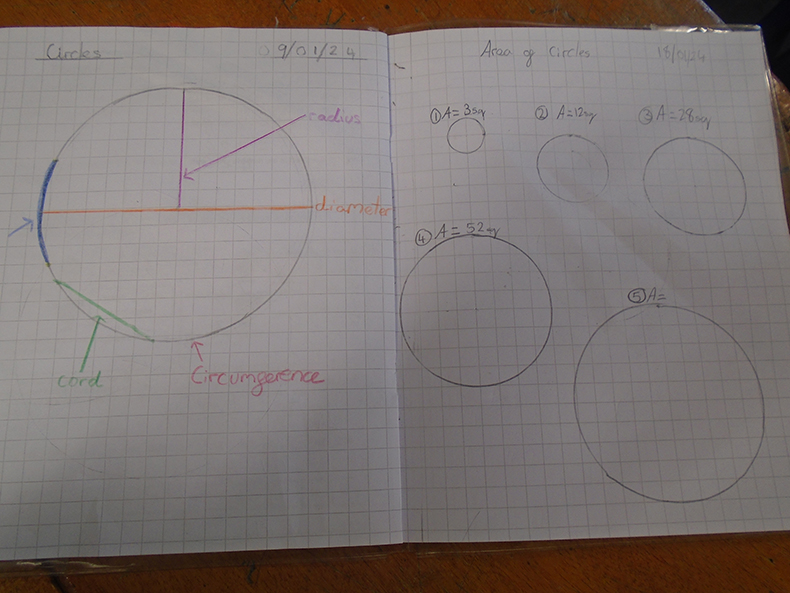 Circles
9/01/24
radius
diameter
cord
Circumference
Area of Circles
① A=3sq
② A=12sq
③ A=28sq
④ A=52sq
⑤ A=